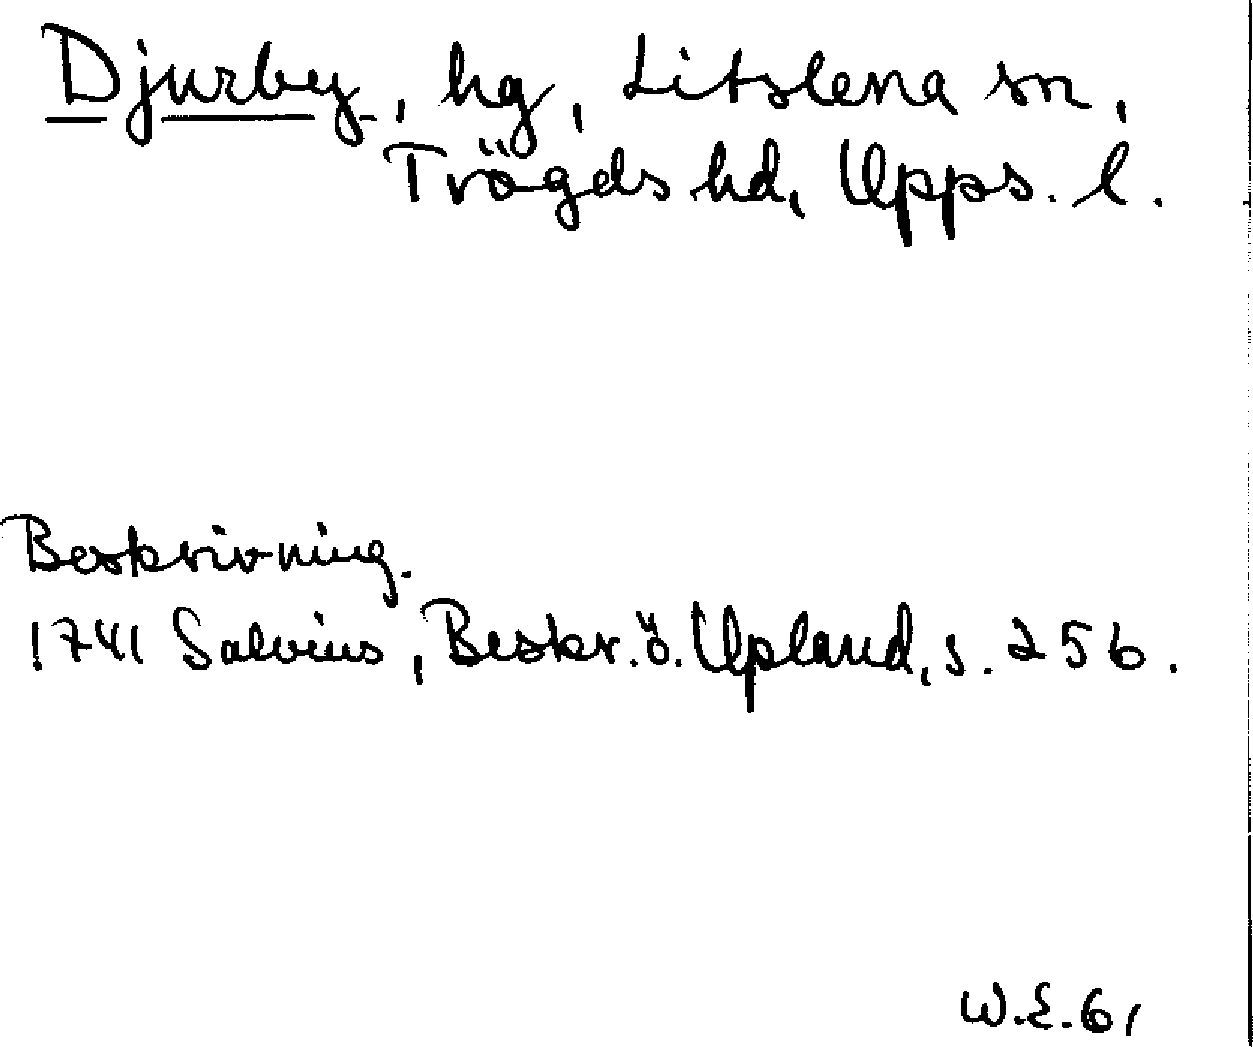 Djurby, hg, Litslena sn,
Trögds hd, Upps. l.
Beskrivning.
1741 Salvius, Beskr. ö. Upland, s. 256.
W.E.61